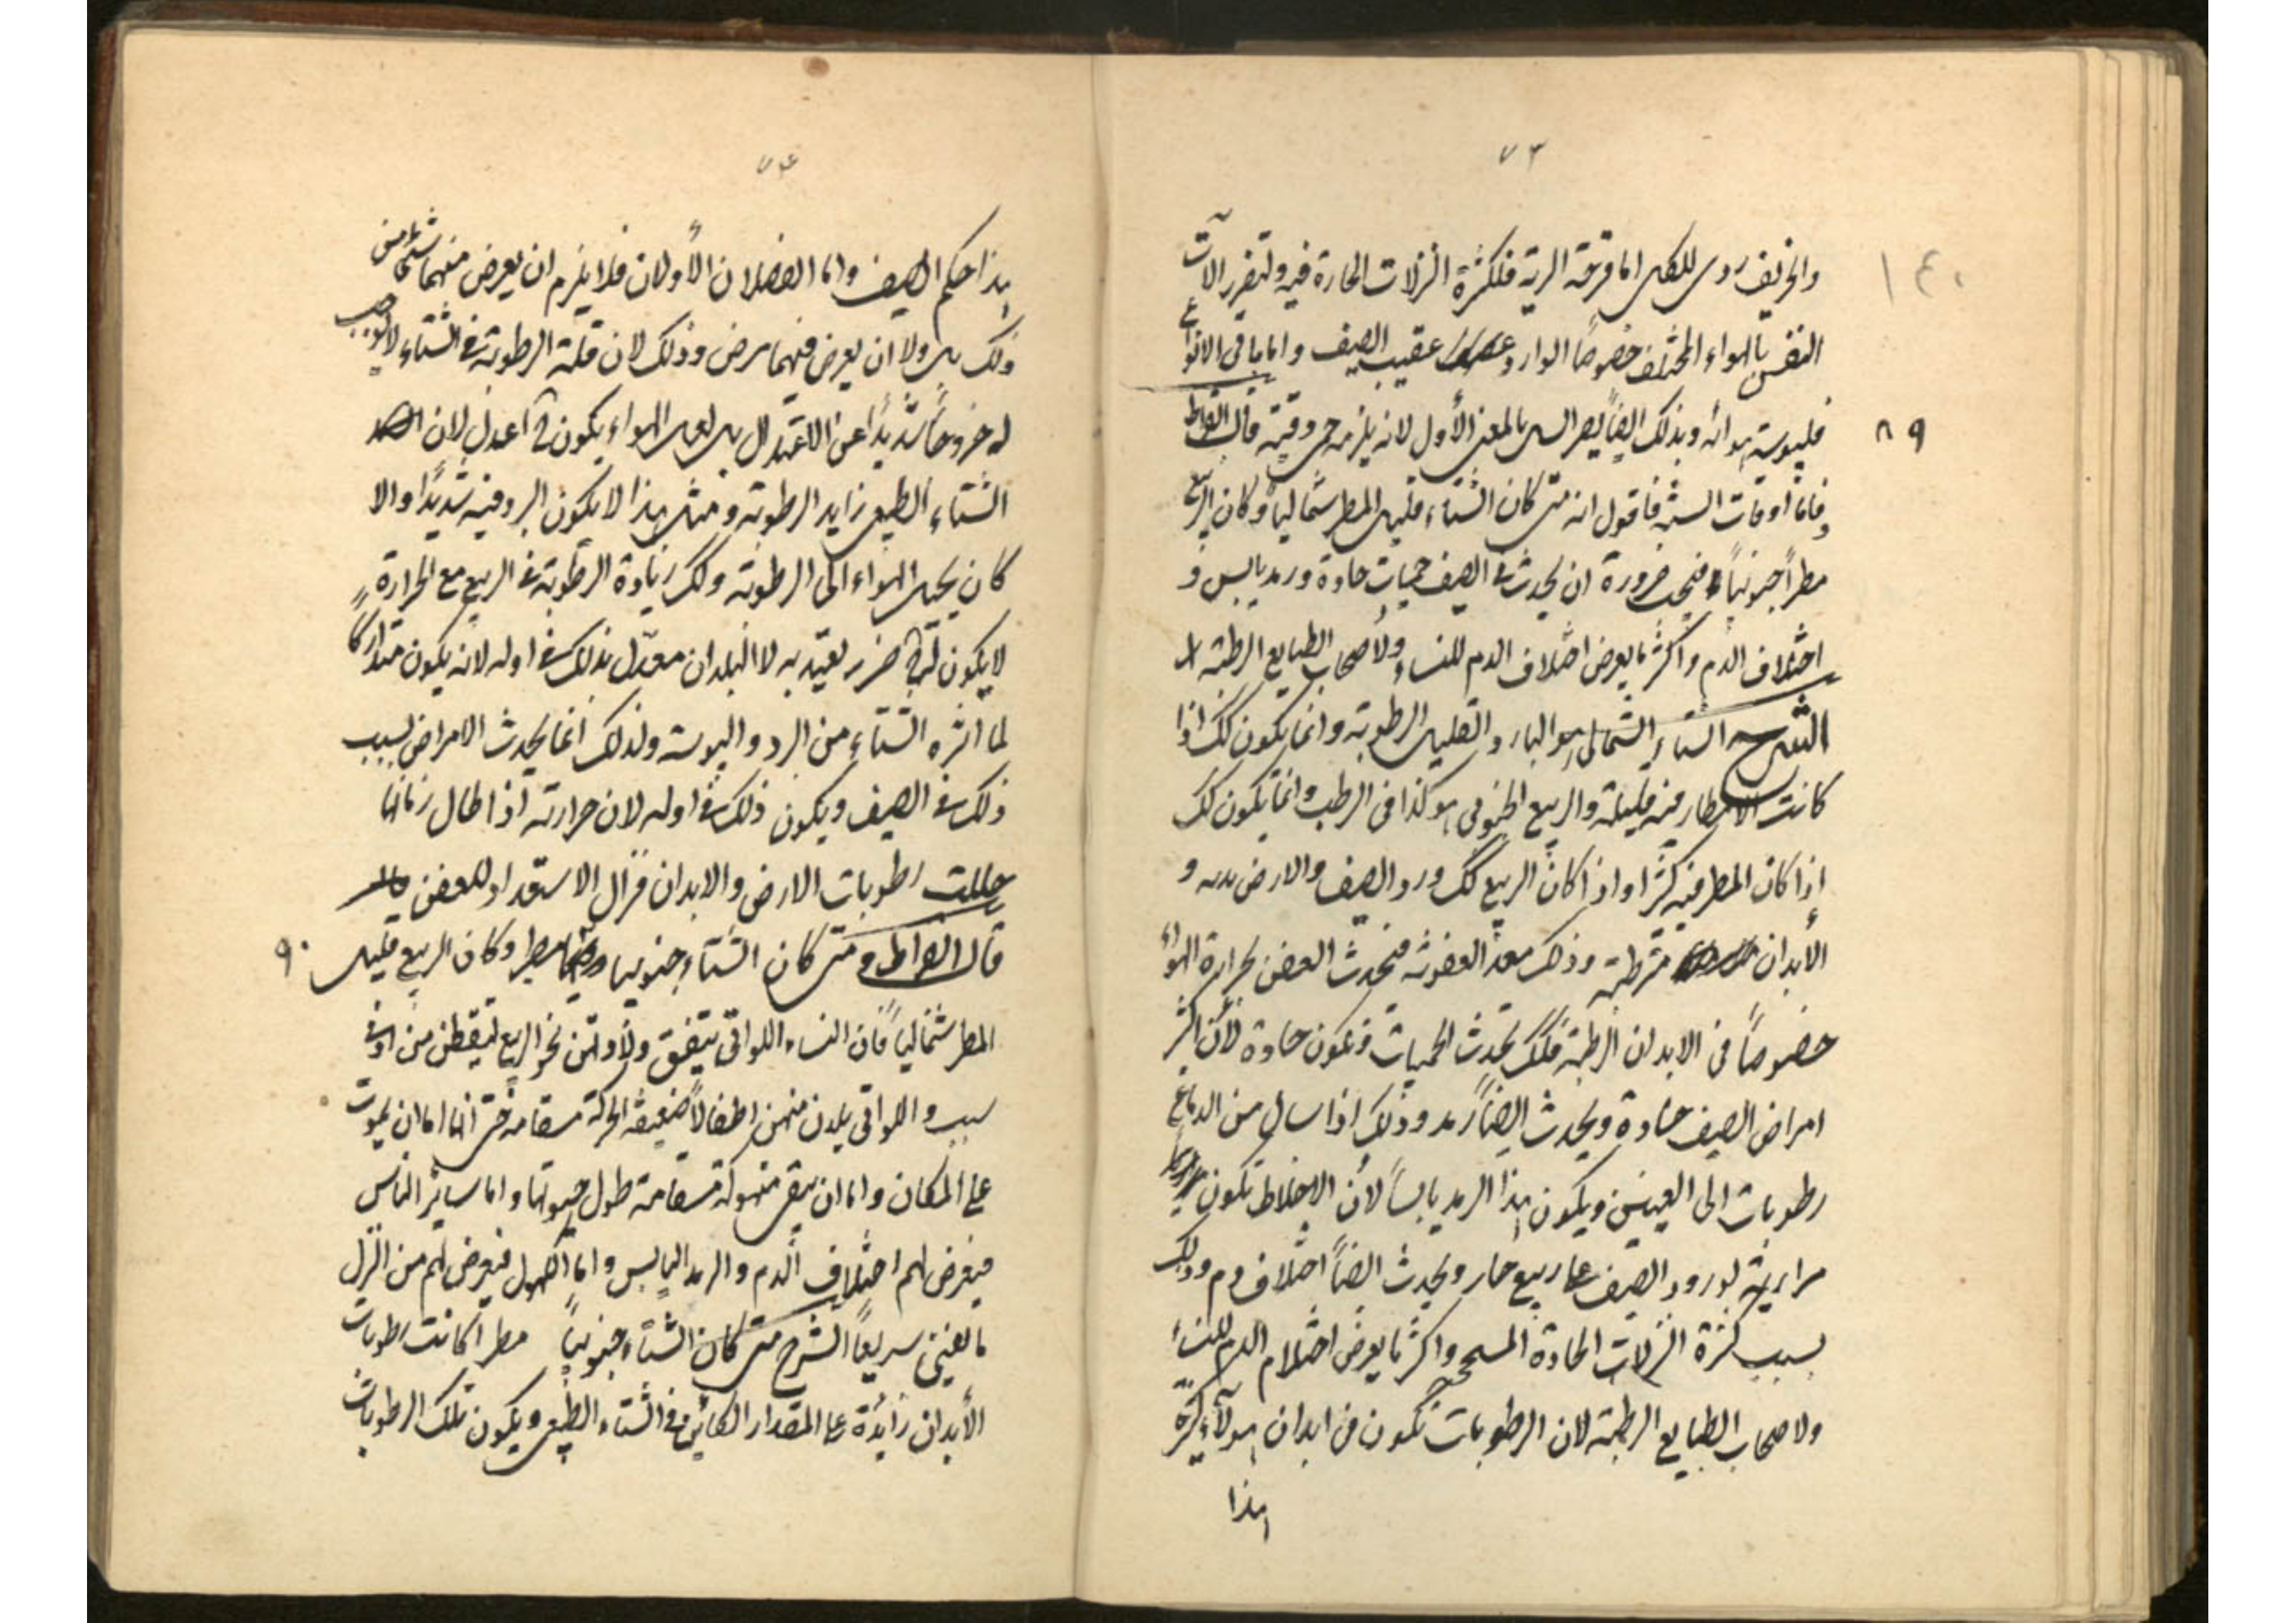 ٧٣
١٤٠
والخريف ردى للسل اما قرحة الرية فلكثرة النزلات الحارة فيه ولتضرر الآت
النفس بالهواء المختلف خصوصاً الوارد عقيب الصيف واما باقى الانواع
٨٩
فليبوسة هوائه وبذلك ايضاً يضر السل بالمعنى الأول لانه يلزمه حمى دقية قال ابقراط
فاما أوقات السنة فاقول انه متى كان الشتاء قليل المطر شمالياً وكان الربيع
مطراً جنوبياً فيجب ضرورة ان يحدث فى الصيف حميات حادة ورمد يابس و
اختلاف الدم واكثر ما يعرض اختلاف الدم للنساء ولأصحاب الطبايع الرطبة
الشرح الشتاء الشمالى هو البارد القليل الرطوبة وانما يكون كك اذا
كانت الامطار فيه قليلة والربيع الجنوبى هو كذا فى الرطب وانما يكون كك
اذا كان المطر فيه كثيرا واذا كان الربيع كك ورد الصيف والارض نديه و
الأبدان مترطبة وذلك معد العفونة فيحدث العفن لحرارة الهواء
خصوصاً فى الابدان الرطبة فلك تحدث الحميات وتكون حادة لأن اكثر
امراض الصيف حادة ويحدث ايضاً رمد وذلك اذا سال من الدماغ
رطوبات الى العينين ويكون هذا الرمد يابساً لأن الاخلاط تكون
مرارية لورود الصيف على ربيع حار ويحدث ايضاً اختلاف دم وذلك
بسبب كثرة النزلات الحادة المسحجة واكثر ما يعرض اختلاف الدم للنساء
ولاصحاب الطبايع الرطبة لان الرطوبات تكون فى ابدان هولآء كثيرة
هذا
٧٤
هذا حكم الصيف واما الفصلان الأولان فلا يلزم ان يعرض منهما شىء من
ذلك بل ولا ان يعرض فيهما مرض وذلك لان قلة الرطوبة فى الشتاء لا توجب
له خروجاً شديداً عن الاعتدال بل لعل الهواء يكون ح اعدل لان
الشتاء الطبيعى زايد الرطوبة ومثل هذا لا يكون البرد فيه شديداً والا
كان يحيل الهواء الى الرطوبة ولك زيادة الرطوبة فى الربيع مع الحرارة
لا يكون لها ح ضرر يعتد به لا البلدان معتدل بذلك فى اوله لانه يكون متداركا
لما اثره الشتاء من البرد واليبوسة ولذلك انما يحدث الامراض بسبب
ذلك فى الصيف ويكون ذلك فى اوله لان حرارته اذا طال زمانها
حللت رطوبات الارض والابدان فزال الاستعداد للعفن
٩٠
قال ابقراط ومتى كان الشتاء جنوبيا مطيرا وكان الربيع قليل
المطر شمالياً فان النساء اللواتى يتفق ولادتهن نحو الربيع يسقطن من ادنى
سبب واللواتى يلدن منهن اطفالاً ضعيفة الحركة مسقامة حتى انها اما ان يموت
على المكان واما ان يبقى منهوكة مسقامة طول حيوتها واما ساير الناس
فيعرض لهم اختلاف الدم والرمد اليابس واما الكهول فيعرض لهم من النزل
ما يفنى سريعاً الشرح متى كان الشتاء جنوبياً مطرا كانت رطوبات
الأبدان زائدة على المقدار الكائن فى الشتاء الطبيعى ويكون تلك الرطوبات